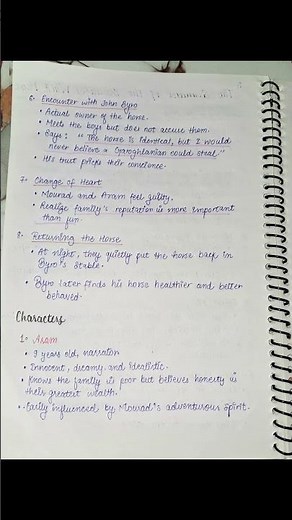 6. Encounter with John Byro
• Actual owner of the horse.
• Meets the boys but does not accuse them.
• Says: "The horse is identical, but I would
never believe a Garoghlanian could steal."
• His trust pricks their conscience.
7. Change of Heart
• Mourad and Aram feel guilty.
• Realize family's reputation is more important
than fun.
8. Returning the Horse
• At night, they quietly put the horse back in
Byro's stable.
• Byro later finds his horse healthier and better
behaved.
Characters
1. Aram
• 9 years old, narrator
• Innocent, dreamy and idealistic.
• Knows the family is poor but believes honesty is
their greatest wealth.
• Easily influenced by Mourad's adventurous spirit.